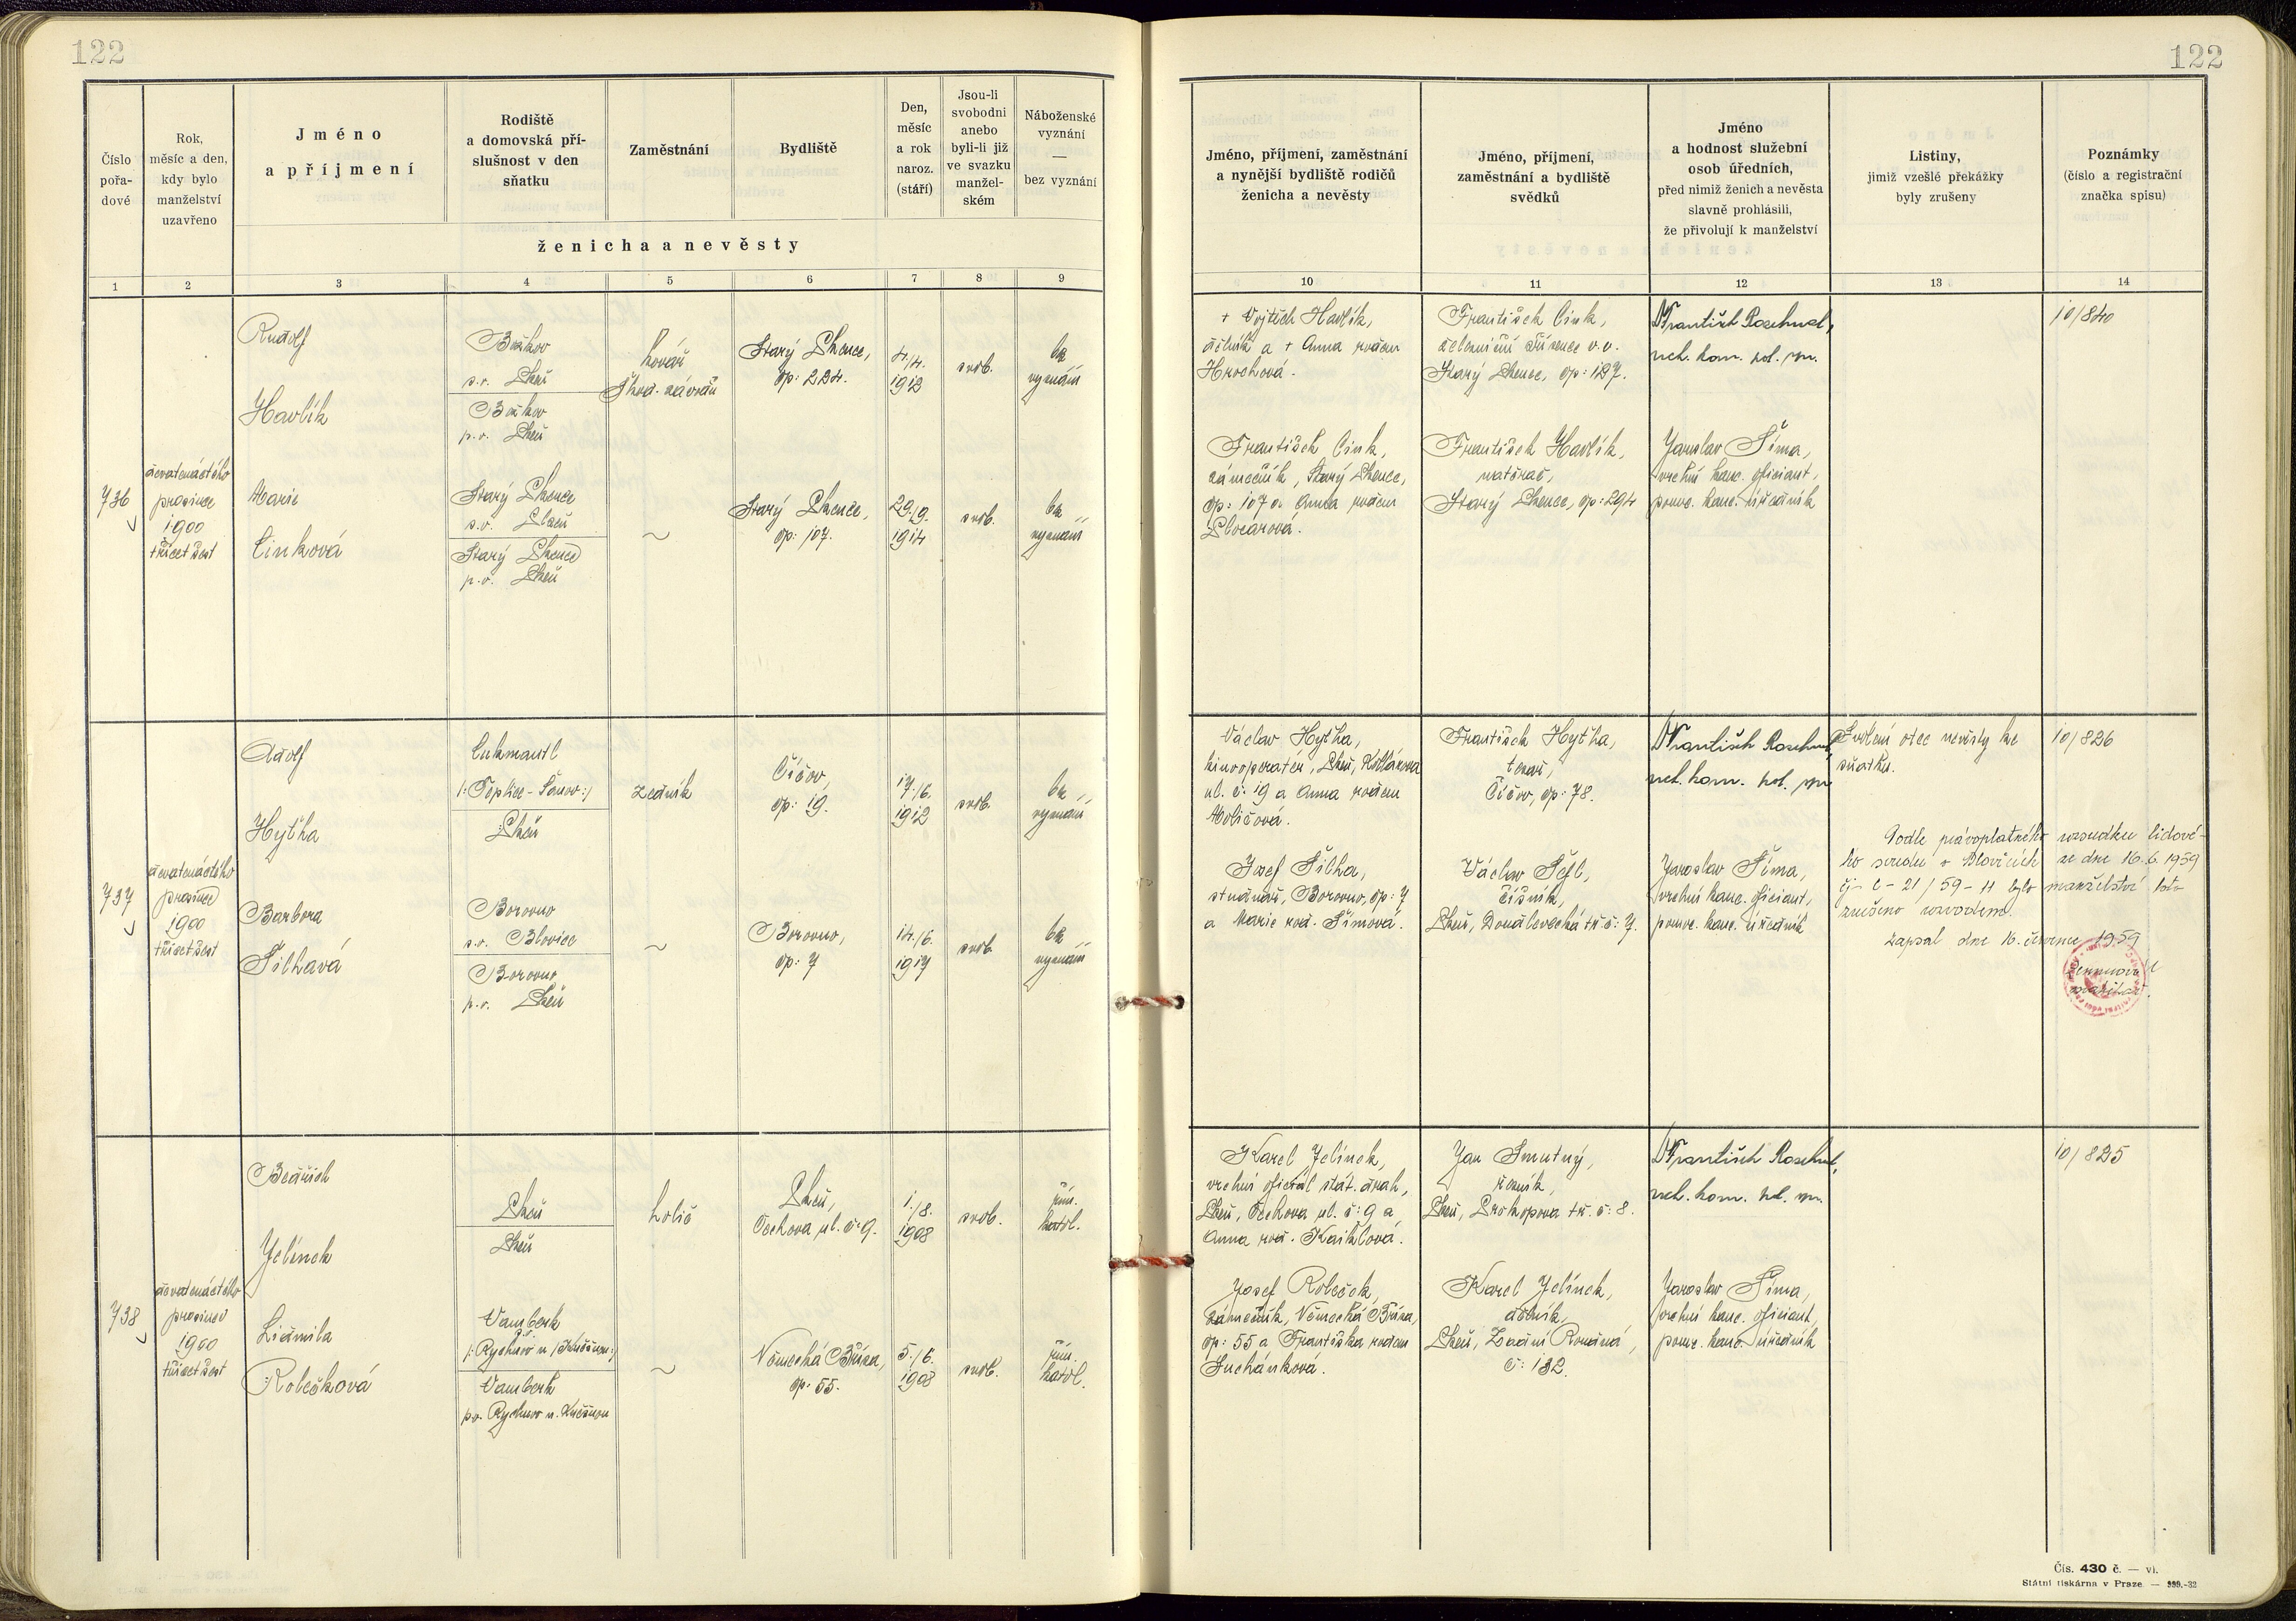 122
122
Číslo
pořa-
dové
Rok,
měsíc a den,
kdy bylo
manželství
uzavřeno
Jméno
a příjmení
Rodiště
a domovská pří-
slušnost v den
sňatku
Zaměstnání
Bydliště
Den,
měsíc
a rok
naroz.
(stáří)
Jsou-li
svobodni
anebo
byli-li již
ve svazku
manžel-
ském
Náboženské
vyznání
—
bez vyznání
ženicha a nevěsty
1 2 3 4 5 6 7 8 9
Jméno, příjmení, zaměstnání
a nynější bydliště rodičů
ženicha a nevěsty
Jméno, příjmení,
zaměstnání a bydliště
svědků
Jméno
a hodnost služební
osob úředních,
před nimiž ženich a nevěsta
slavně prohlásili,
že přivolují k manželství
Listiny,
jimiž vzešlé překážky
byly zrušeny
Poznámky
(číslo a registrační
značka spisu)
10 11 12 13 14
736
devatenáctého
prosince
1900
třicet šest
Rudolf
Havlík
Marie
Cinková
Božkov
s.o. Plzeň
Božkov
p.o. Plzeň
Starý Plzenec
s.o. Plzeň
Starý Plzenec
p.o. Plzeň
kovář
Škod. závodů
Starý Plzenec,
čp: 224.
4./4.
1912
svob.
bez
vyznání
~
Starý Plzenec,
čp: 107.
29./9.
1914
svob.
bez
vyznání
+ Vojtěch Havlík,
dělník a + Anna rozen
Hrochová.
František Cink,
zámečník, Starý Plzenec,
čp: 107 a Anna rozen
František Cink,
železniční zřízenec v.v.
Starý Plzenec, čp: 127.
František Havlík,
natěrač,
Starý Plzenec, čp: 294
Jaroslav Šíma,
vrchní kanc. oficiant,
pomoc. kanc. úředník
10/840
737
devatenáctého
prosince
1900
třicet šest
Adolf
Hyťha
Barbora
Šilhavá
Cukmantl
/:Teplice-Šanov:/
Plzeň
Borovno
s.o. Blovice
Borovno
p.o. Plzeň
zedník
Čížov,
čp: 19.
17./6.
1912
svob.
bez
vyznání
~
Borovno,
čp: 7
14./6.
1917
svob.
bez
vyznání
Václav Hyťha,
kinooperatér, Plzeň, Kollárova
ul. č: 19 a Anna rozen
Holičová.
Josef Šilha,
studnař, Borovno, čp: 7
a Marie roz. Šimová.
František Hyťha,
tesař,
Čížov, čp: 78.
Václav Šefl,
číšník,
Plzeň, Doudlevecká tř. č: 7.
Jaroslav Šíma,
vrchní kanc. oficiant,
pomoc. kanc. úředník
Svolení otce nevěsty ke
sňatku.
10/826
Podle právoplatného rozsudku lidové-
ho soudu v Blovicích ze dne 16.6.1959
čj- C - 21/59 - 11 bylo manželství toto
zrušeno rozvodem.
Zapsal dne 16. července 1959
matrikář.
738
devatenáctého
prosince
1900
třicet šest
Bedřich
Jelínek
Lidmila
Rolečková
Plzeň
Plzeň
Vamberk
/:Rychnov n./Kněžnou:/
Vamberk
p.o. Rychnov n. Kněžnou
holič
Plzeň,
Čechova ul. č: 9.
1./8.
1908
svob.
řím.
katol.
~
Německá Bříza,
čp: 55.
5./6.
1908
svob.
řím.
katol.
Karel Jelínek,
vrchní oficiál stát. drah,
Plzeň, Čechova ul. č: 9 a
Anna roz. Kaiklová.
Josef Roleček,
zámečník, Německá Bříza,
čp: 55 a Františka rozen
Suchánková.
Jan Smutný,
řezník,
Plzeň, Prokopova tř. č: 8.
Karel Jelínek,
dělník,
Plzeň, Zadní Roudná,
č: 132.
Jaroslav Šíma,
vrchní kanc. oficiant,
pomoc. kanc. úředník
10/825
Čís. 430 č. — vl.
Státní tiskárna v Praze. — 999.-32